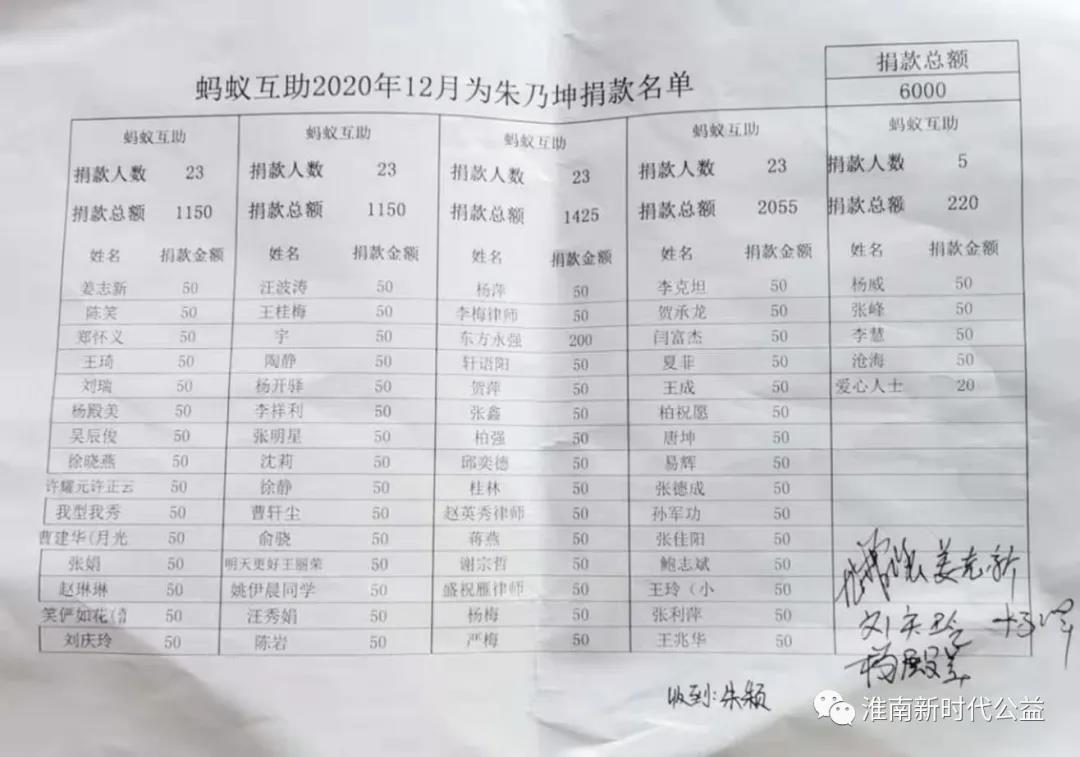 蚂蚁互助2020年12月为朱乃坤捐款名单
捐款总额
6000
蚂蚁互助 蚂蚁互助 蚂蚁互助 蚂蚁互助 蚂蚁互助
捐款人数 23 捐款人数 23 捐款人数 23 捐款人数 23 捐款人数 5
捐款总额 1150 捐款总额 1150 捐款总额 1425 捐款总额 2055 捐款总额 220
姓名 捐款金额 姓名 捐款金额 姓名 捐款金额 姓名 捐款金额 姓名 捐款金额
姜志新 50 汪波涛 50 杨萍 50 李克坦 50 杨威 50
陈笑 50 王桂梅 50 李梅律师 50 贺承龙 50 张峰 50
郑怀义 50 宇 50 东方永强 200 闫富杰 50 李慧 50
王琦 50 陶静 50 轩语阳 50 夏菲 50 沧海 50
刘瑞 50 杨开驿 50 贺萍 50 王成 50 爱心人士 20
杨殿美 50 李祥利 50 张鑫 50 柏祝愿 50
吴辰俊 50 张明星 50 柏强 50 唐坤 50
徐晓燕 50 沈莉 50 邱奕德 50 易辉 50
许耀元许正云 50 徐静 50 桂林 50 张德成 50
我型我秀 50 曹轩尘 50 赵英秀律师 50 孙军功 50
曹建华(月光 50 俞骁 50 蒋燕 50 张佳阳 50
张娟 50 明天更好王丽荣 50 谢宗哲 50 鲍志斌 50
赵琳琳 50 姚伊晨同学 50 盛祝雁律师 50 王玲（小 50
笑俨如花( 50 汪秀娟 50 杨梅 50 张利萍 50
刘庆玲 50 陈岩 50 严梅 50 王兆华 50
姜志新
刘庆玲
杨殿美
收到:朱颖
淮南新时代公益